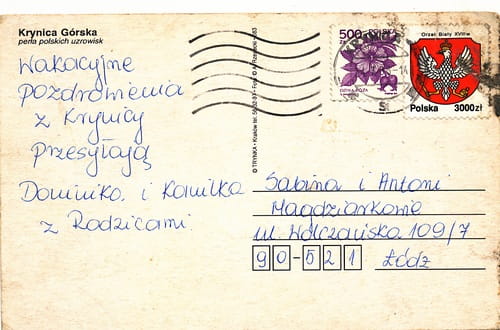 Krynica Górska
perla polskich uzrowisk
Wakacyjne
Pozdrowienia
z Krynicy
Przesyłają
Dominika i Kamilka
z Rodzicami
© TRYNKA - Kraków tel.
500 zł
DZIKA RÓŻA
Orzeł Biały XVIII w.
Polska 3000 zł
Sabina i Antoni
Magdziarkowie
ul. Wólczańska 109/7
90-521 Łódź